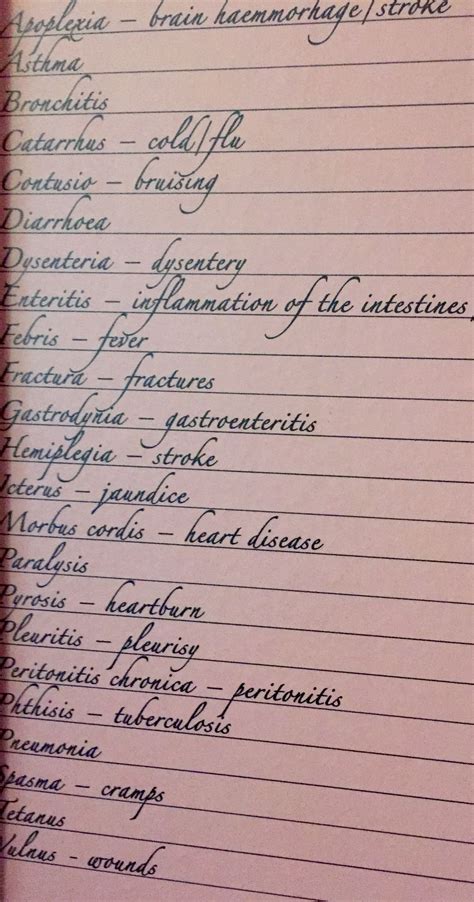 Apoplexia – brain haemmorhage/stroke
Asthma
Bronchitis
Catarrhus – cold/flu
Contusio – bruising
Diarrhoea
Dysenteria – dysentery
Enteritis – inflammation of the intestines
Febris – fever
Fractura – fractures
Gastrodynia – gastroenteritis
Hemiplegia – stroke
Icterus – jaundice
Morbus cordis – heart disease
Paralysis
Pyrosis – heartburn
Pleuritis – pleurisy
Peritonitis chronica – peritonitis
Phthisis – tuberculosis
Pneumonia
Spasma – cramps
Tetanus
Vulnus - wounds